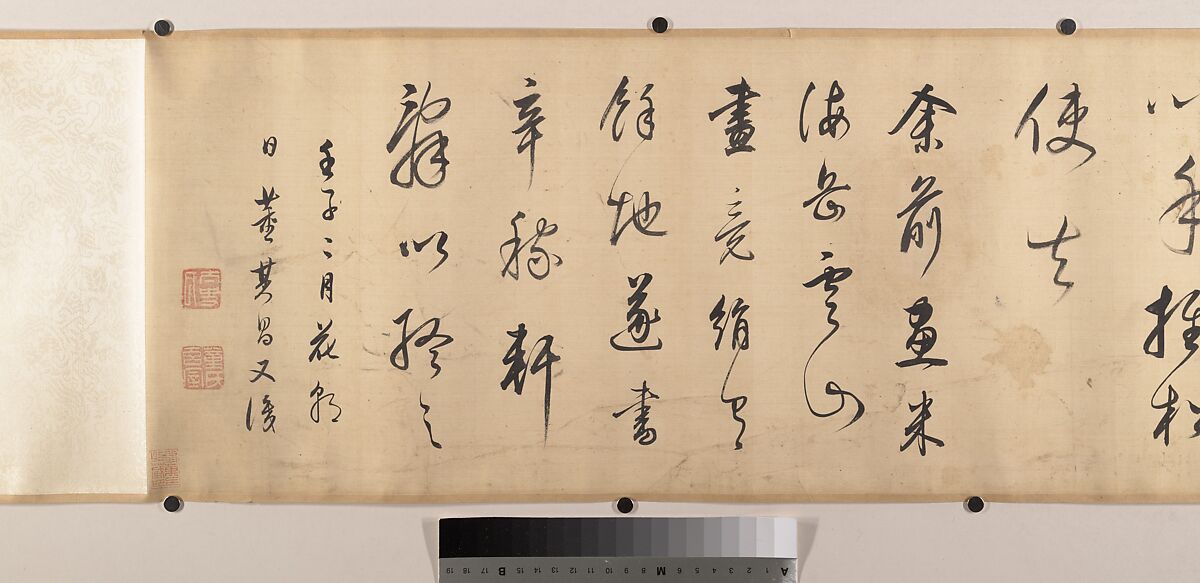 以手推松
使去
余前畫米
海岳雲山
畫竟絹有
餘地遂書
辛稼軒
辭以終之
壬子二月花朝
日董其昌又識
A 1 2 3 4 5 6 M 8 9 10 11 12 13 14 15 B 17 18 19